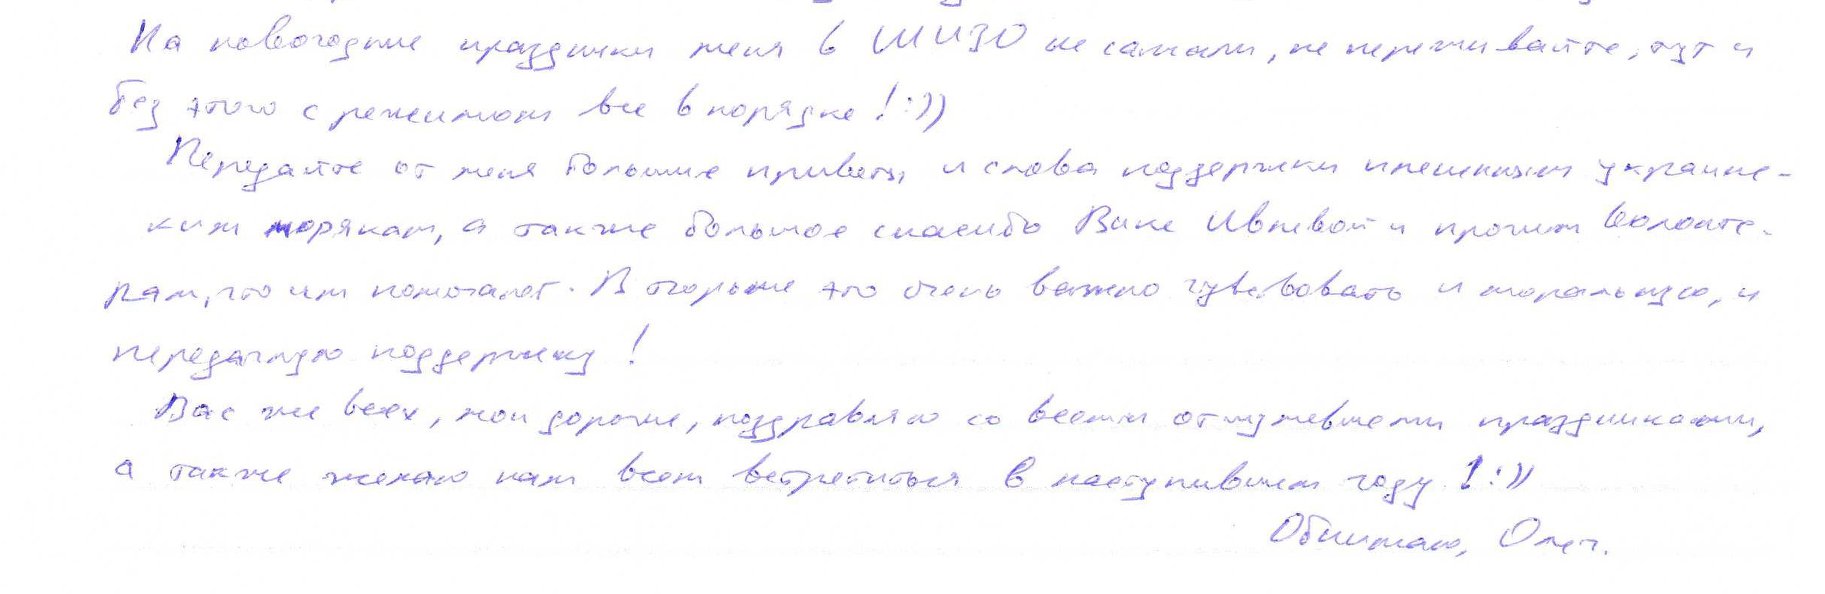 На новогодние праздники меня в ШИЗО не сажали, не переживайте, тут и
без этого с режимом все в порядке! :))
Передайте от меня большие приветы и слова поддержки пленным украинс-
ким морякам, а также большое спасибо Вике Ивлевой и прочим волонте-
рам, что им помогают. В тюрьме это очень важно чувствовать и моральную, и
передачную поддержку!
Вас же всех, мои дорогие, поздравляю со всеми отшумевшими праздниками,
а также желаю нам всем встретиться в наступившем году! :))
Обнимаю, Олег.